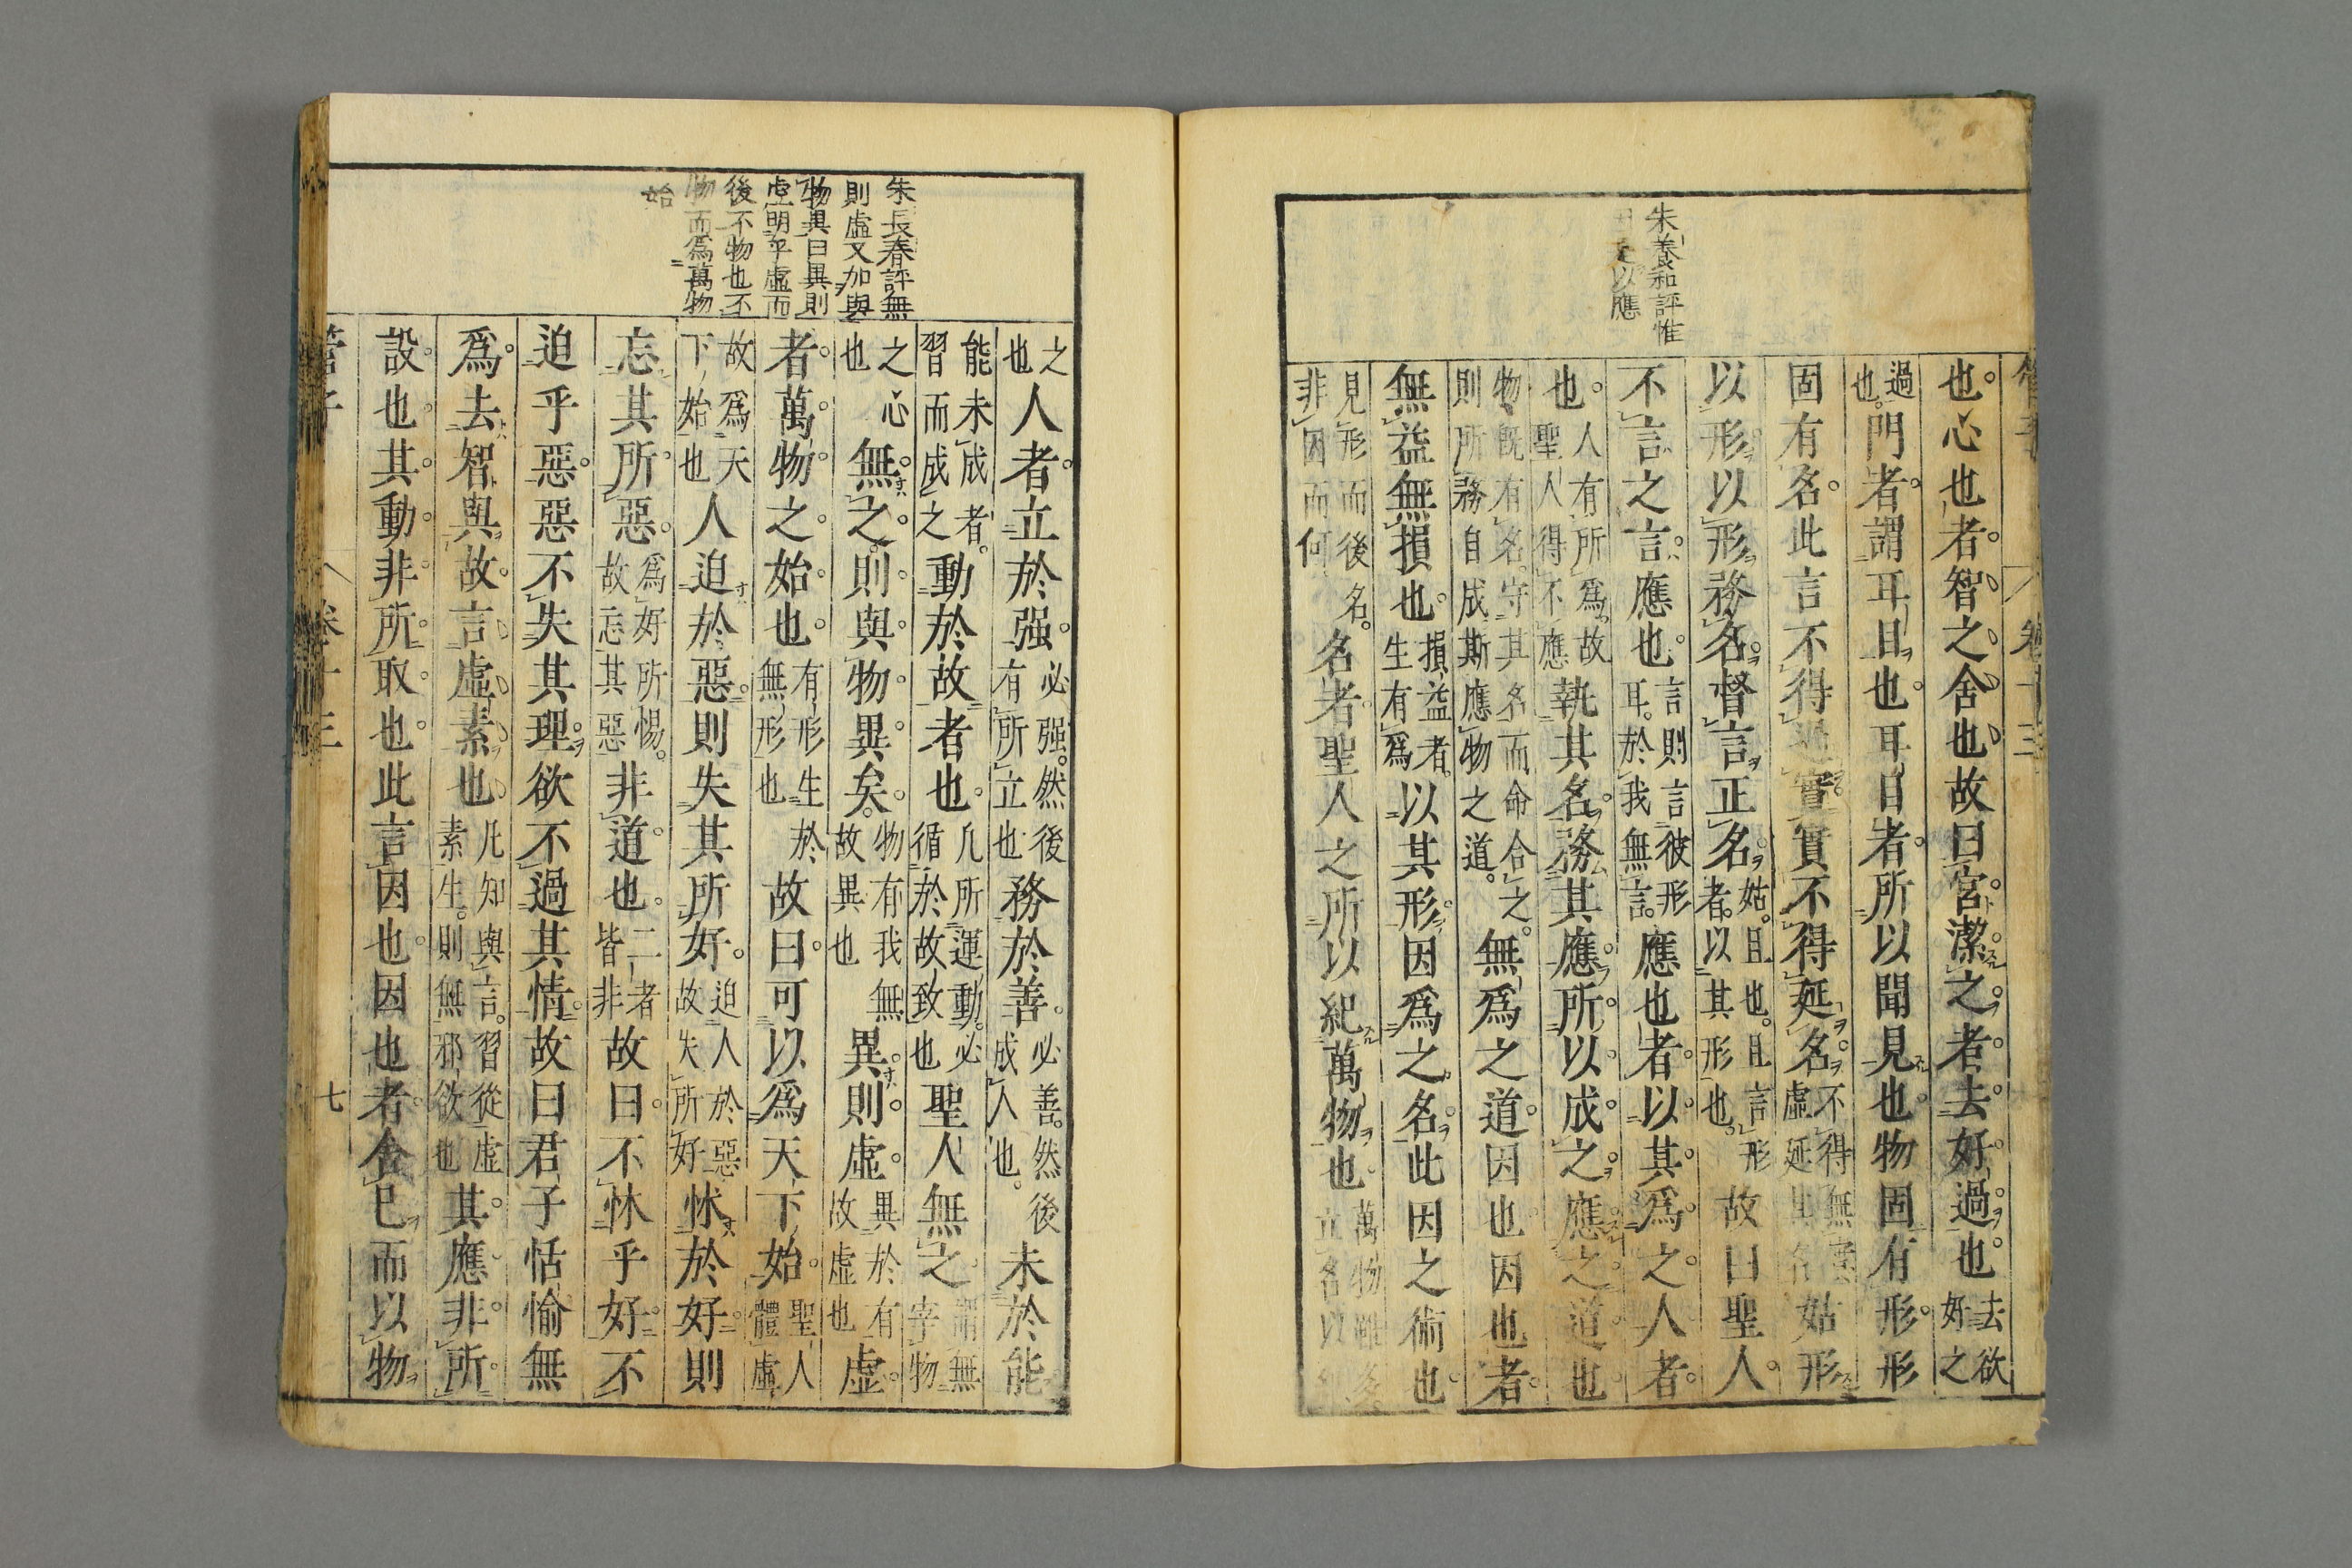 管子 卷十三
朱養和評惟
以應
也心也者智之舍也故曰宮潔之者去好過也去欲好之
過也門者謂耳目也耳目者所以聞見也物固有形形
固有名此言不得過實實不得延名不得無實虛延其名姑形
以形以形務名督言正名姑。且也。且言形者。以其形也。故曰聖人
不言之言應也言則言彼形耳。於我無言。應也者以其爲之人者
也人有所爲。故聖人得不應執其名務其應所以成之應之道也
物既有名。守其名而命合之。則所務自成斯應物之道。無爲之道因也因也者
無益無損也損益者。生有爲以其形因爲之名此因之術也
見形而後名。非因而何名者聖人之所以紀萬物也萬物雖多。立名以紀
朱長春評無
則虛又加與
物異曰異則
虛明乎虛而
後不物也不
物而爲萬物
始
之也人者立於强必强。然後有所立也務於善必善。然後成人也。未於能
能未成者。習而成之動於故者也凡所運動。必循於故致也聖人無之謂無宰物
之心也無之則與物異矣物有我無故異也異則虛異於有故虛也虛
者萬物之始也有形生於無形也故曰可以爲天下始聖人體虛
故爲天下始也人迫於惡則失其所好迫人於惡故失所好怵於好則
忘其所惡爲好所惕。故忘其惡非道也二者皆非故曰不怵乎好不
迫乎惡惡不失其理欲不過其情故曰君子恬愉無
爲去智與故言虛素也凡知與言。習從虛素生。則無邪欲也其應非所
設也其動非所取也此言因也因也者舍已而以物
管子 卷十三 七